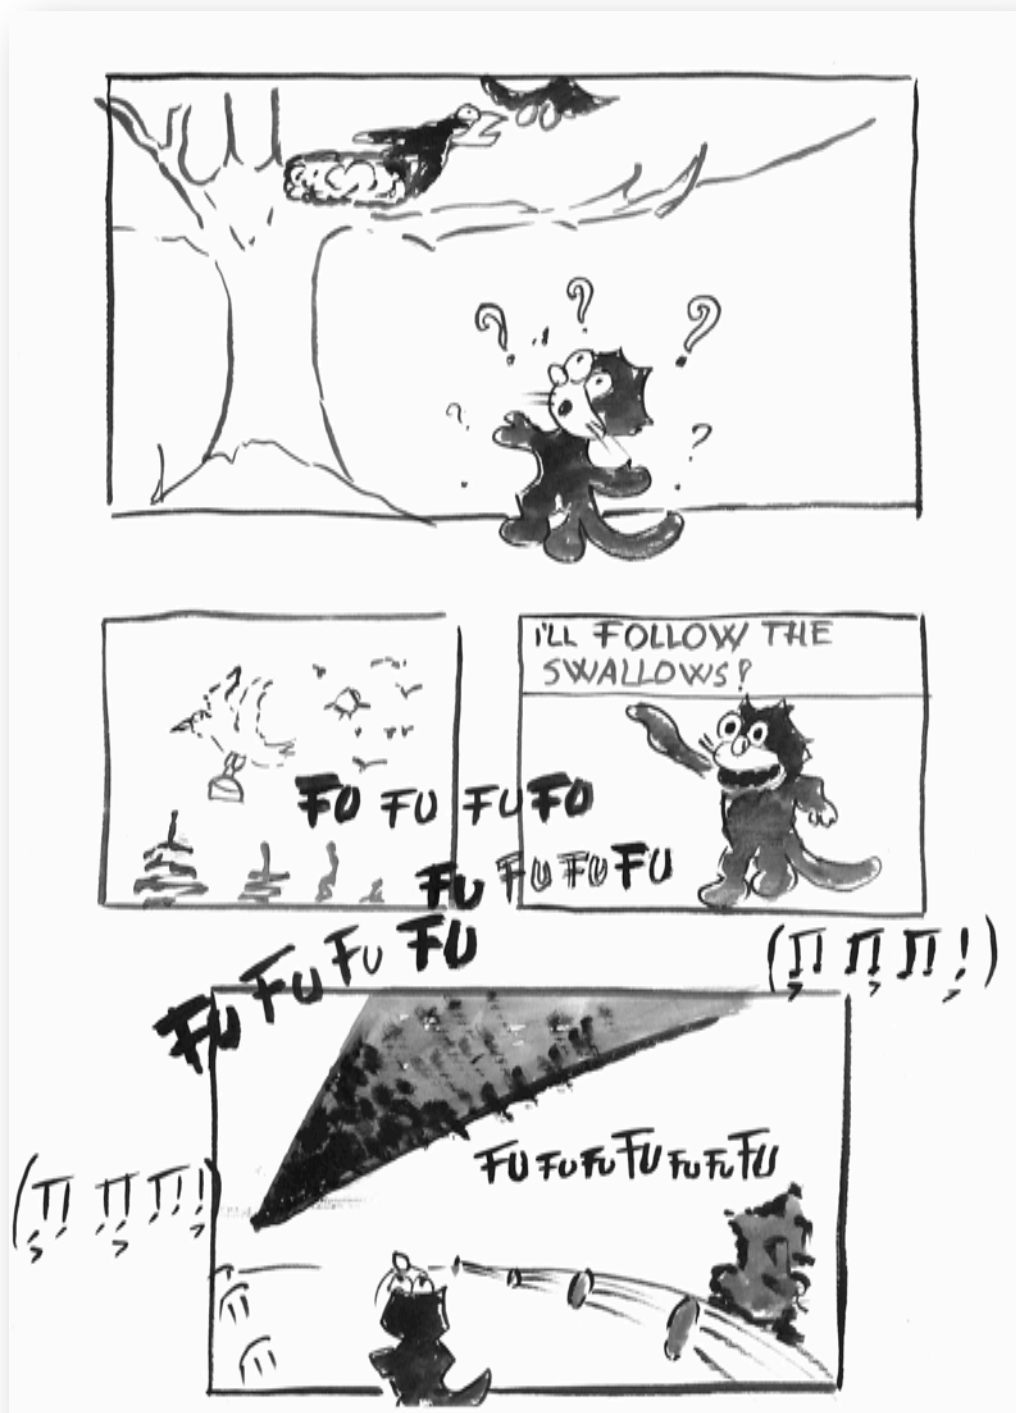 ? ? ?
? ?
I'LL FOLLOW THE
SWALLOWS!
FU FU FU FU
FU FU FU FU
FU FU FU FU
FU FU FU FU FU FU FU